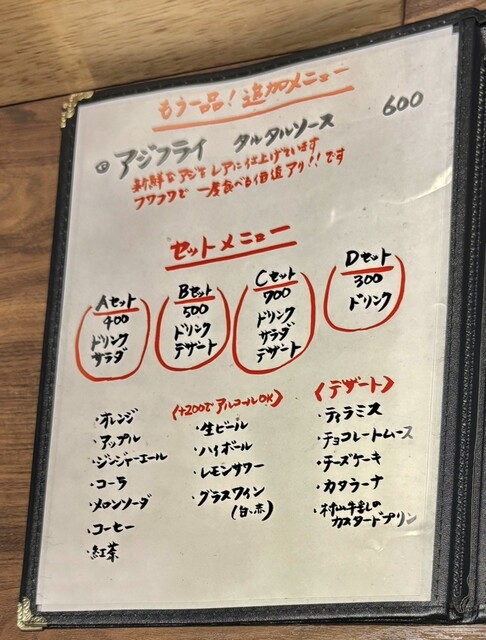 もう一品！追加メニュー
◎アジフライ タルタルソース 600
新鮮なアジをレアに仕上げています
フワフワで一度食べる価値アリ!!です
セットメニュー
Aセット
400
ドリンク
サラダ
Bセット
500
ドリンク
デザート
Cセット
700
ドリンク
サラダ
デザート
Dセット
300
ドリンク
・オレンジ
・アップル
・ジンジャーエール
・コーラ
・メロンソーダ
・コーヒー
・紅茶
〈+200でアルコールOK〉
・生ビール
・ハイボール
・レモンサワー
・グラスワイン
(白、赤)
〈デザート〉
・ティラミス
・チョコレートムース
・チーズケーキ
・カタラーナ
・村山牛乳の
カスタードプリン